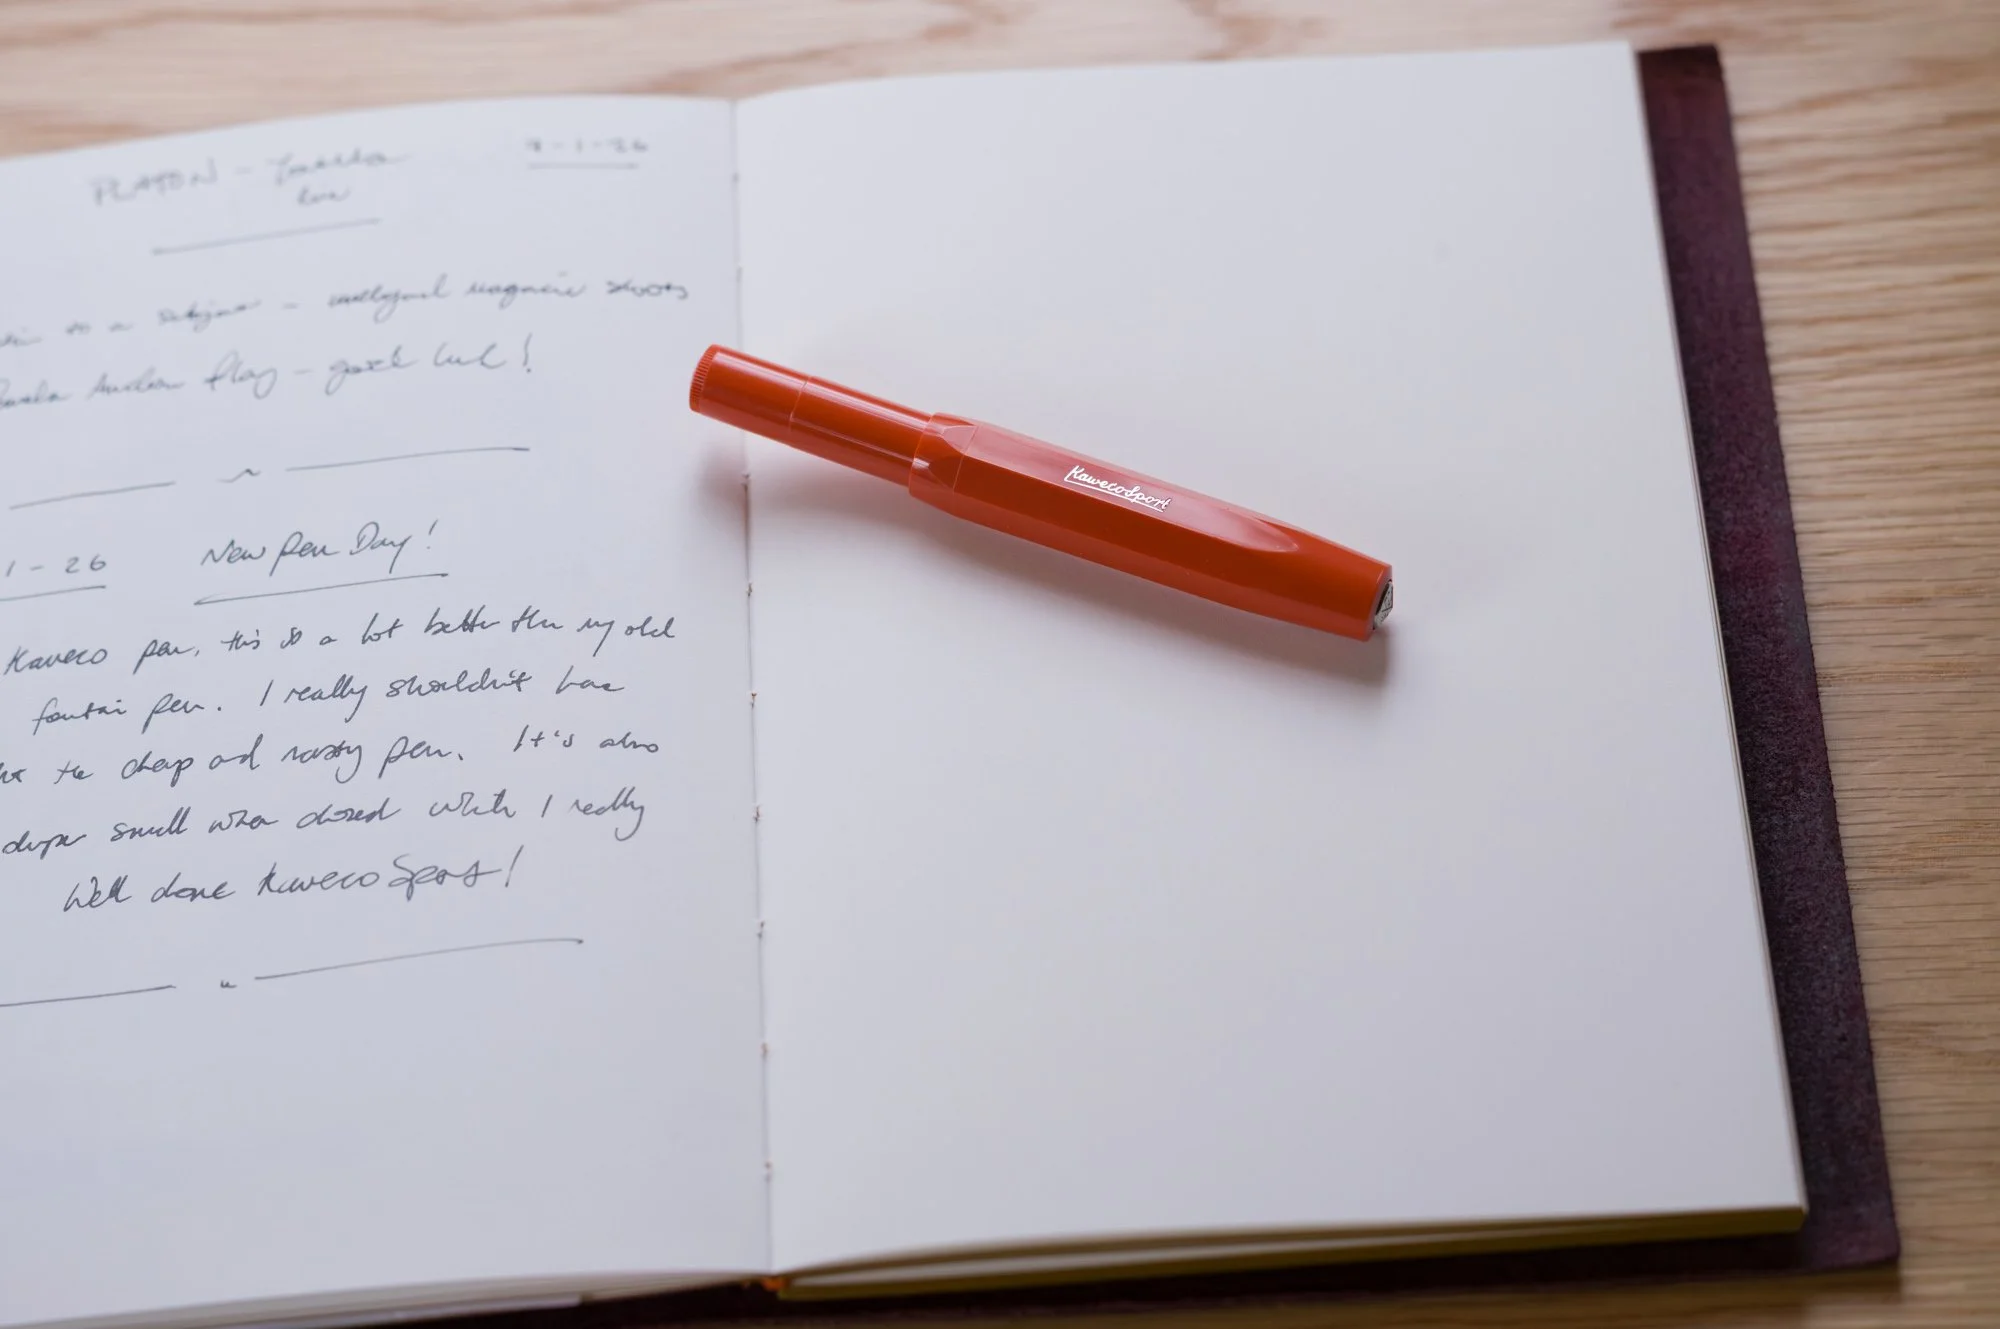 PLATON -
- 1 - 26
to a subject - magazine shoots
play - good luck!
1 - 26 New Pen Day!
Kaweco pen, this is a lot better the my old
fountain pen. I really shouldn't have
the cheap and nasty pen. It's also
super small when closed which I really
Well done Kaweco Sport!
Kaweco Sport